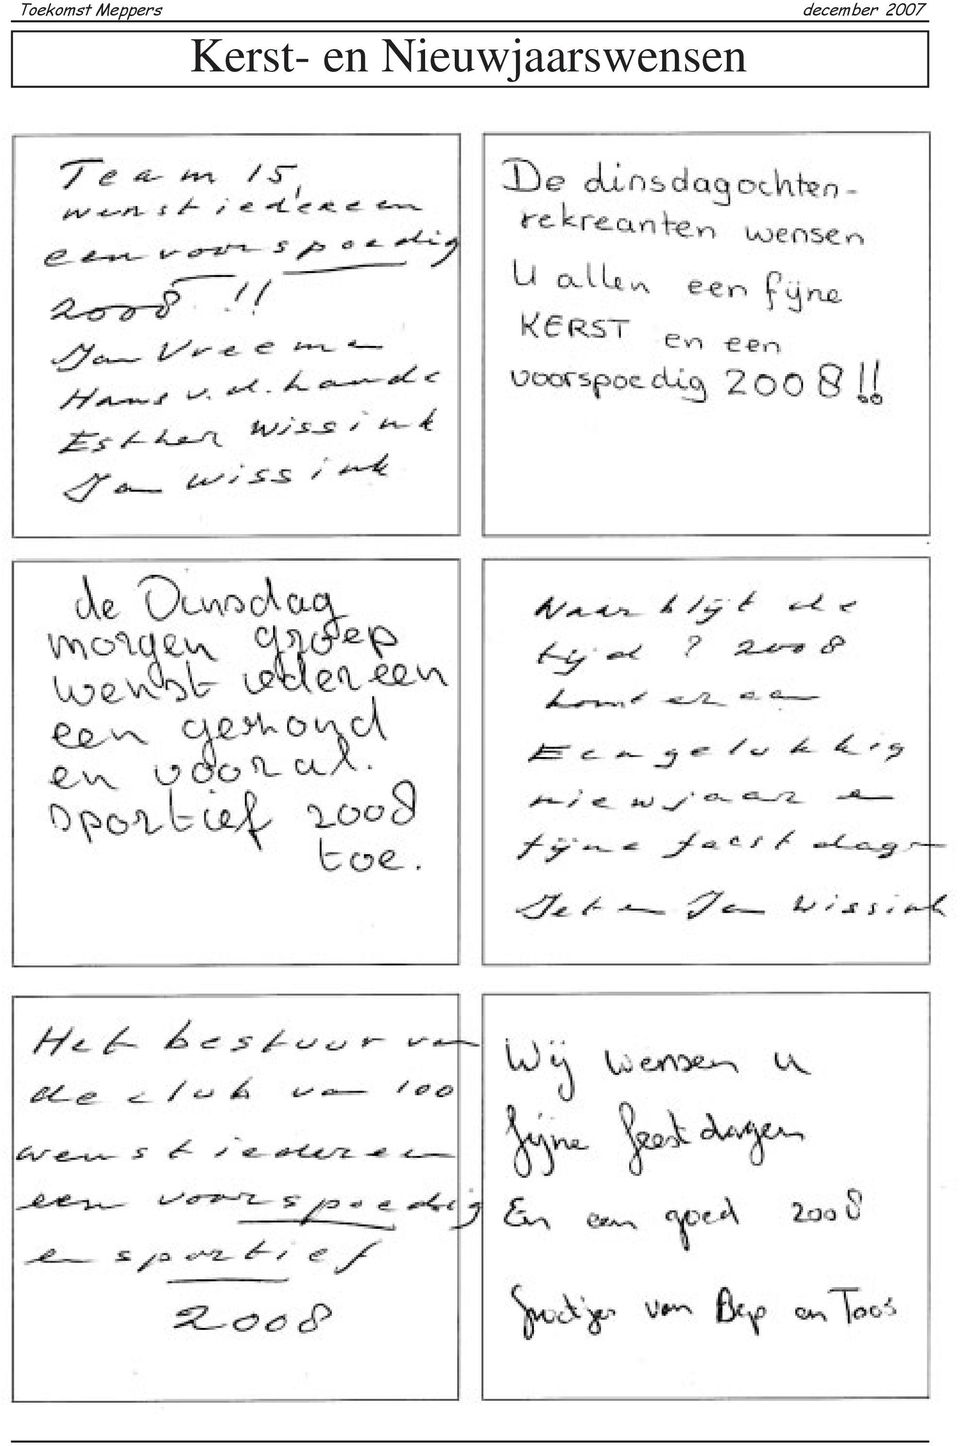 Toekomst Meppers december 2007
Kerst- en Nieuwjaarswensen
Team 15,
wenst iedereen
een voorspoedig
2008 !!
Jan Vreeman
Hans v.d. hande
Esther Wissink
Jan Wissink
De dinsdagochten-
rekreanten wensen
U allen een fijne
KERST en een
voorspoedig 2008!!
de Dinsdag
morgen groep
wenst iedereen
een gezond
en vooral.
sportief 2008
toe.
Waar blijt de
tijd ? 2008
komt er aan
Een gelukkig
niewjaar en
fijne feestdagen
Jet en Jan Wissink
Het bestuur van
de club van 100
wenst iedereen
een voorspoedig
en sportief
2008
Wij wensen u
fijne feestdagen
En een goed 2008
Groetjes van Bep en Toos